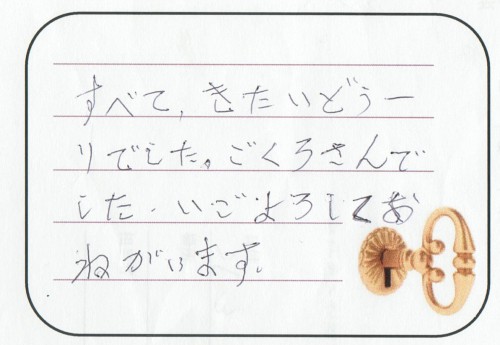 すべて、きたいどうー
りでした。ごくろさんで
した。いごよろしくお
ねがいます。